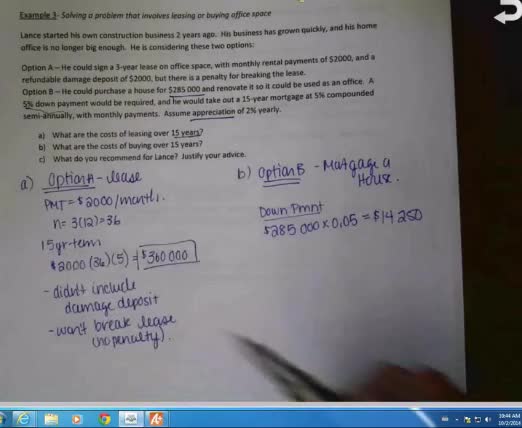 Example 3- Solving a problem that involves leasing or buying office space
Lance started his own construction business 2 years ago. His business has grown quickly, and his home
office is no longer big enough. He is considering these two options:
Option A – He could sign a 3-year lease on office space, with monthly rental payments of $2000, and a
refundable damage deposit of $2000, but there is a penalty for breaking the lease.
Option B – He could purchase a house for $285 000 and renovate it so it could be used as an office. A
5% down payment would be required, and he would take out a 15-year mortgage at 5% compounded
semi-annually, with monthly payments. Assume appreciation of 2% yearly.
a) What are the costs of leasing over 15 years?
b) What are the costs of buying over 15 years?
c) What do you recommend for Lance? Justify your advice.
a) Option A - lease
PMT = $2000/month.
n = 3(12) = 36
15yr-term
$2000 (36)(5) = $360 000
- didn't include
damage deposit
- won't break lease
(no penalty).
b) Option B - Mortgage a
House.
Down Pmnt
$285 000 x 0.05 = $14 250
10:44 AM
10/2/2014